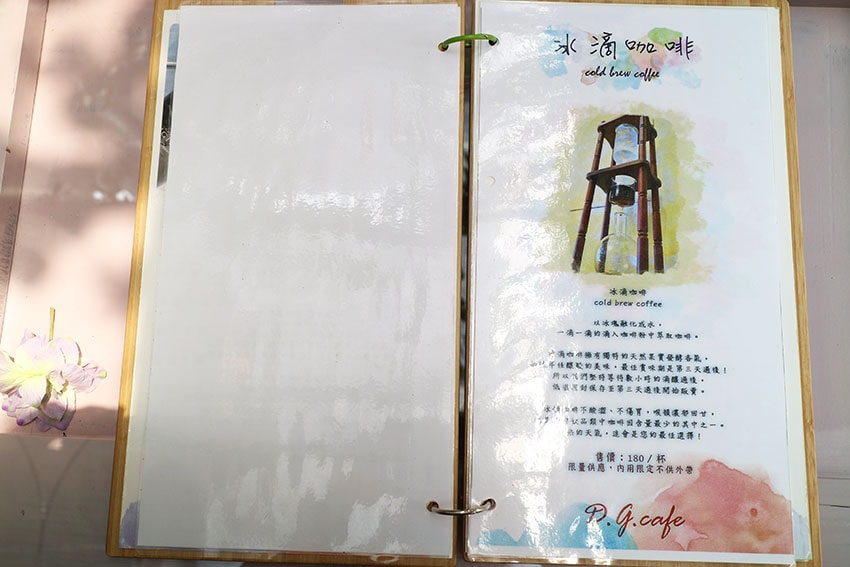 冰滴咖啡
cold brew coffee
冰滴咖啡
cold brew coffee
以冰塊融化成水，
一滴一滴的滴入咖啡粉中萃取咖啡。
滴咖啡擁有獨特的天然果實發酵香氣，
的美味，最佳賞味期是第三天過後！
所以我們堅持等待數小時的滴釀過後，
低溫密封保存至第三天過後開始販賣。
咖啡不酸澀、不傷胃，喉韻濃郁回甘，
品類中咖啡因含量最少的其中之一。
的天氣，這會是您的最佳選擇！
售價：180／杯
限量供應，內用限定不供外帶
D.G.cafe